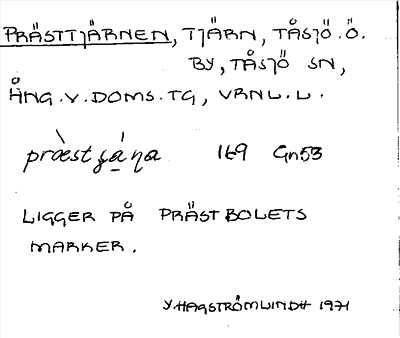 PRÄSTTJÄRNEN, TJÄRN, TÅSJÖ.Ö.
BY, TÅSJÖ SN,
ÅNG.V.DOMS.TG, VRNL.L.
169 Gn53
LIGGER PÅ PRÄSTBOLETS
MARKER.
Y.HAGSTRÖMLINDH 1971